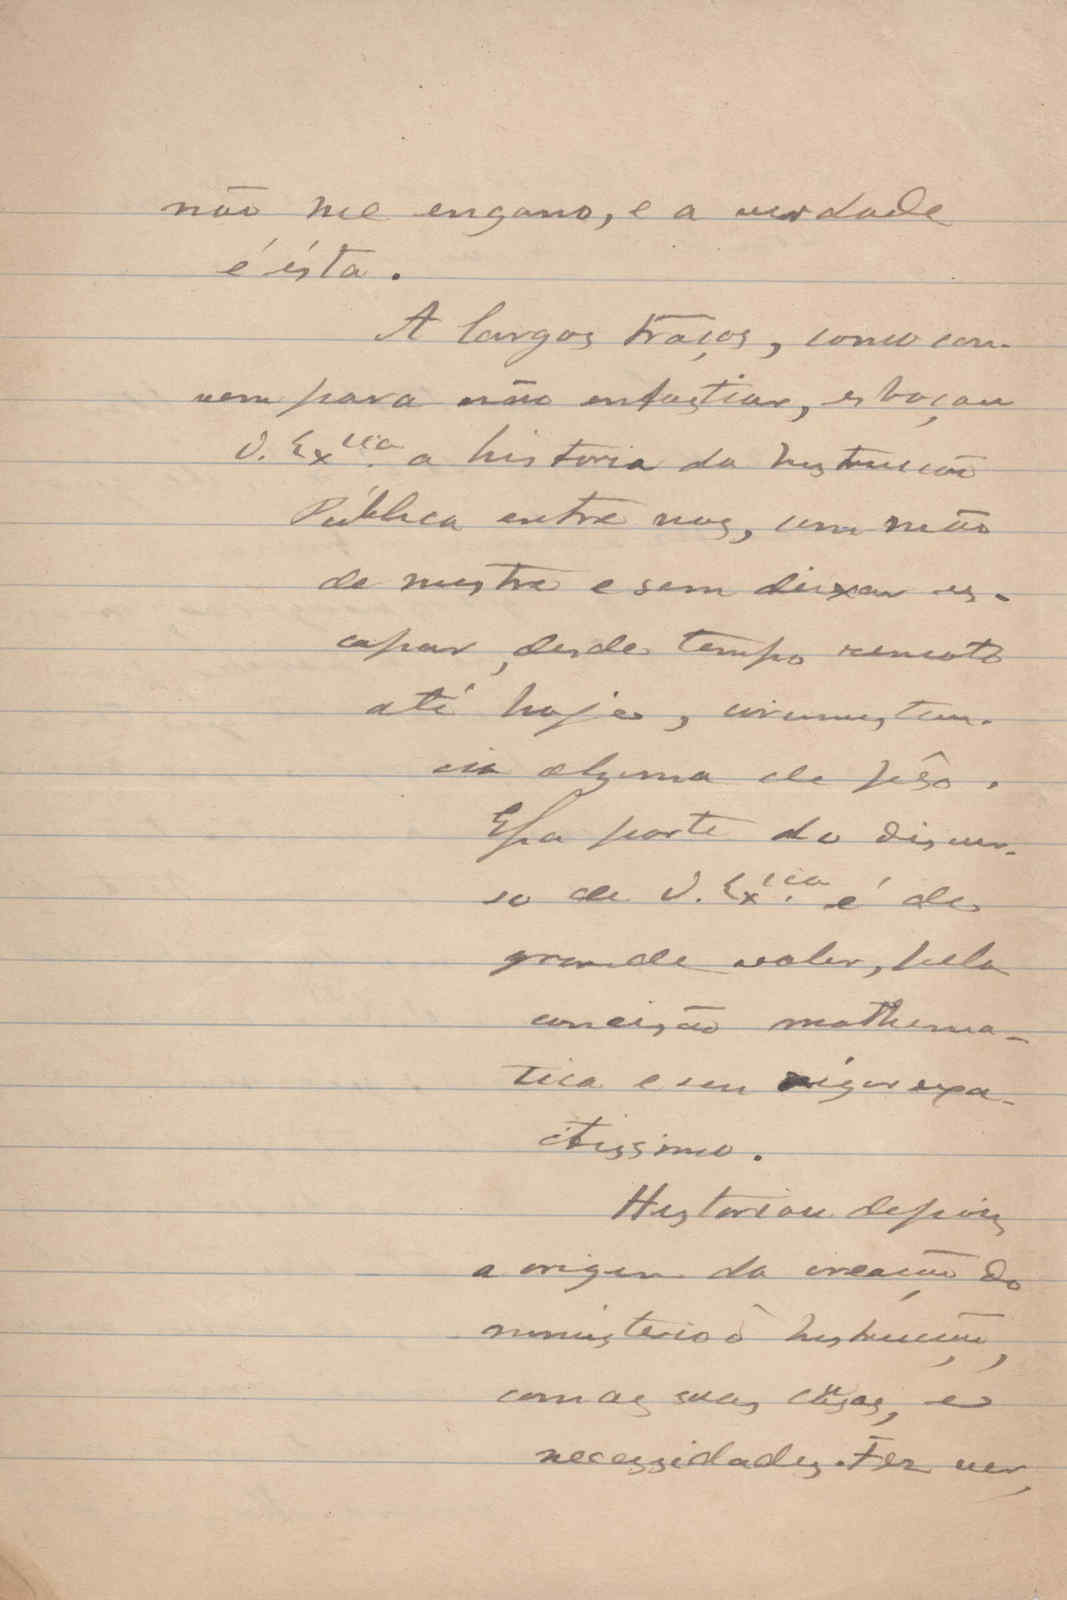 não me engano, e a verdade
é ésta.
A largos traços, como con-
vem para não enfastiar, esboçou
V. Ex.cia a historia da Instrucção
Pública entre nos, com mão
de mestre e sem deixar es-
capar, desde tempo remoto
até hoje, circumstan-
cia alguma de pêso.
Essa parte do discur-
so de V. Ex.cia é de
grande valor, pela
concisão mathema-
tica e seu rigor exa-
ctissimo.
Historiou depois
a origem da creação do
ministerio d' Instrucção,
com as suas causas, e
necessidades. Fez ver,